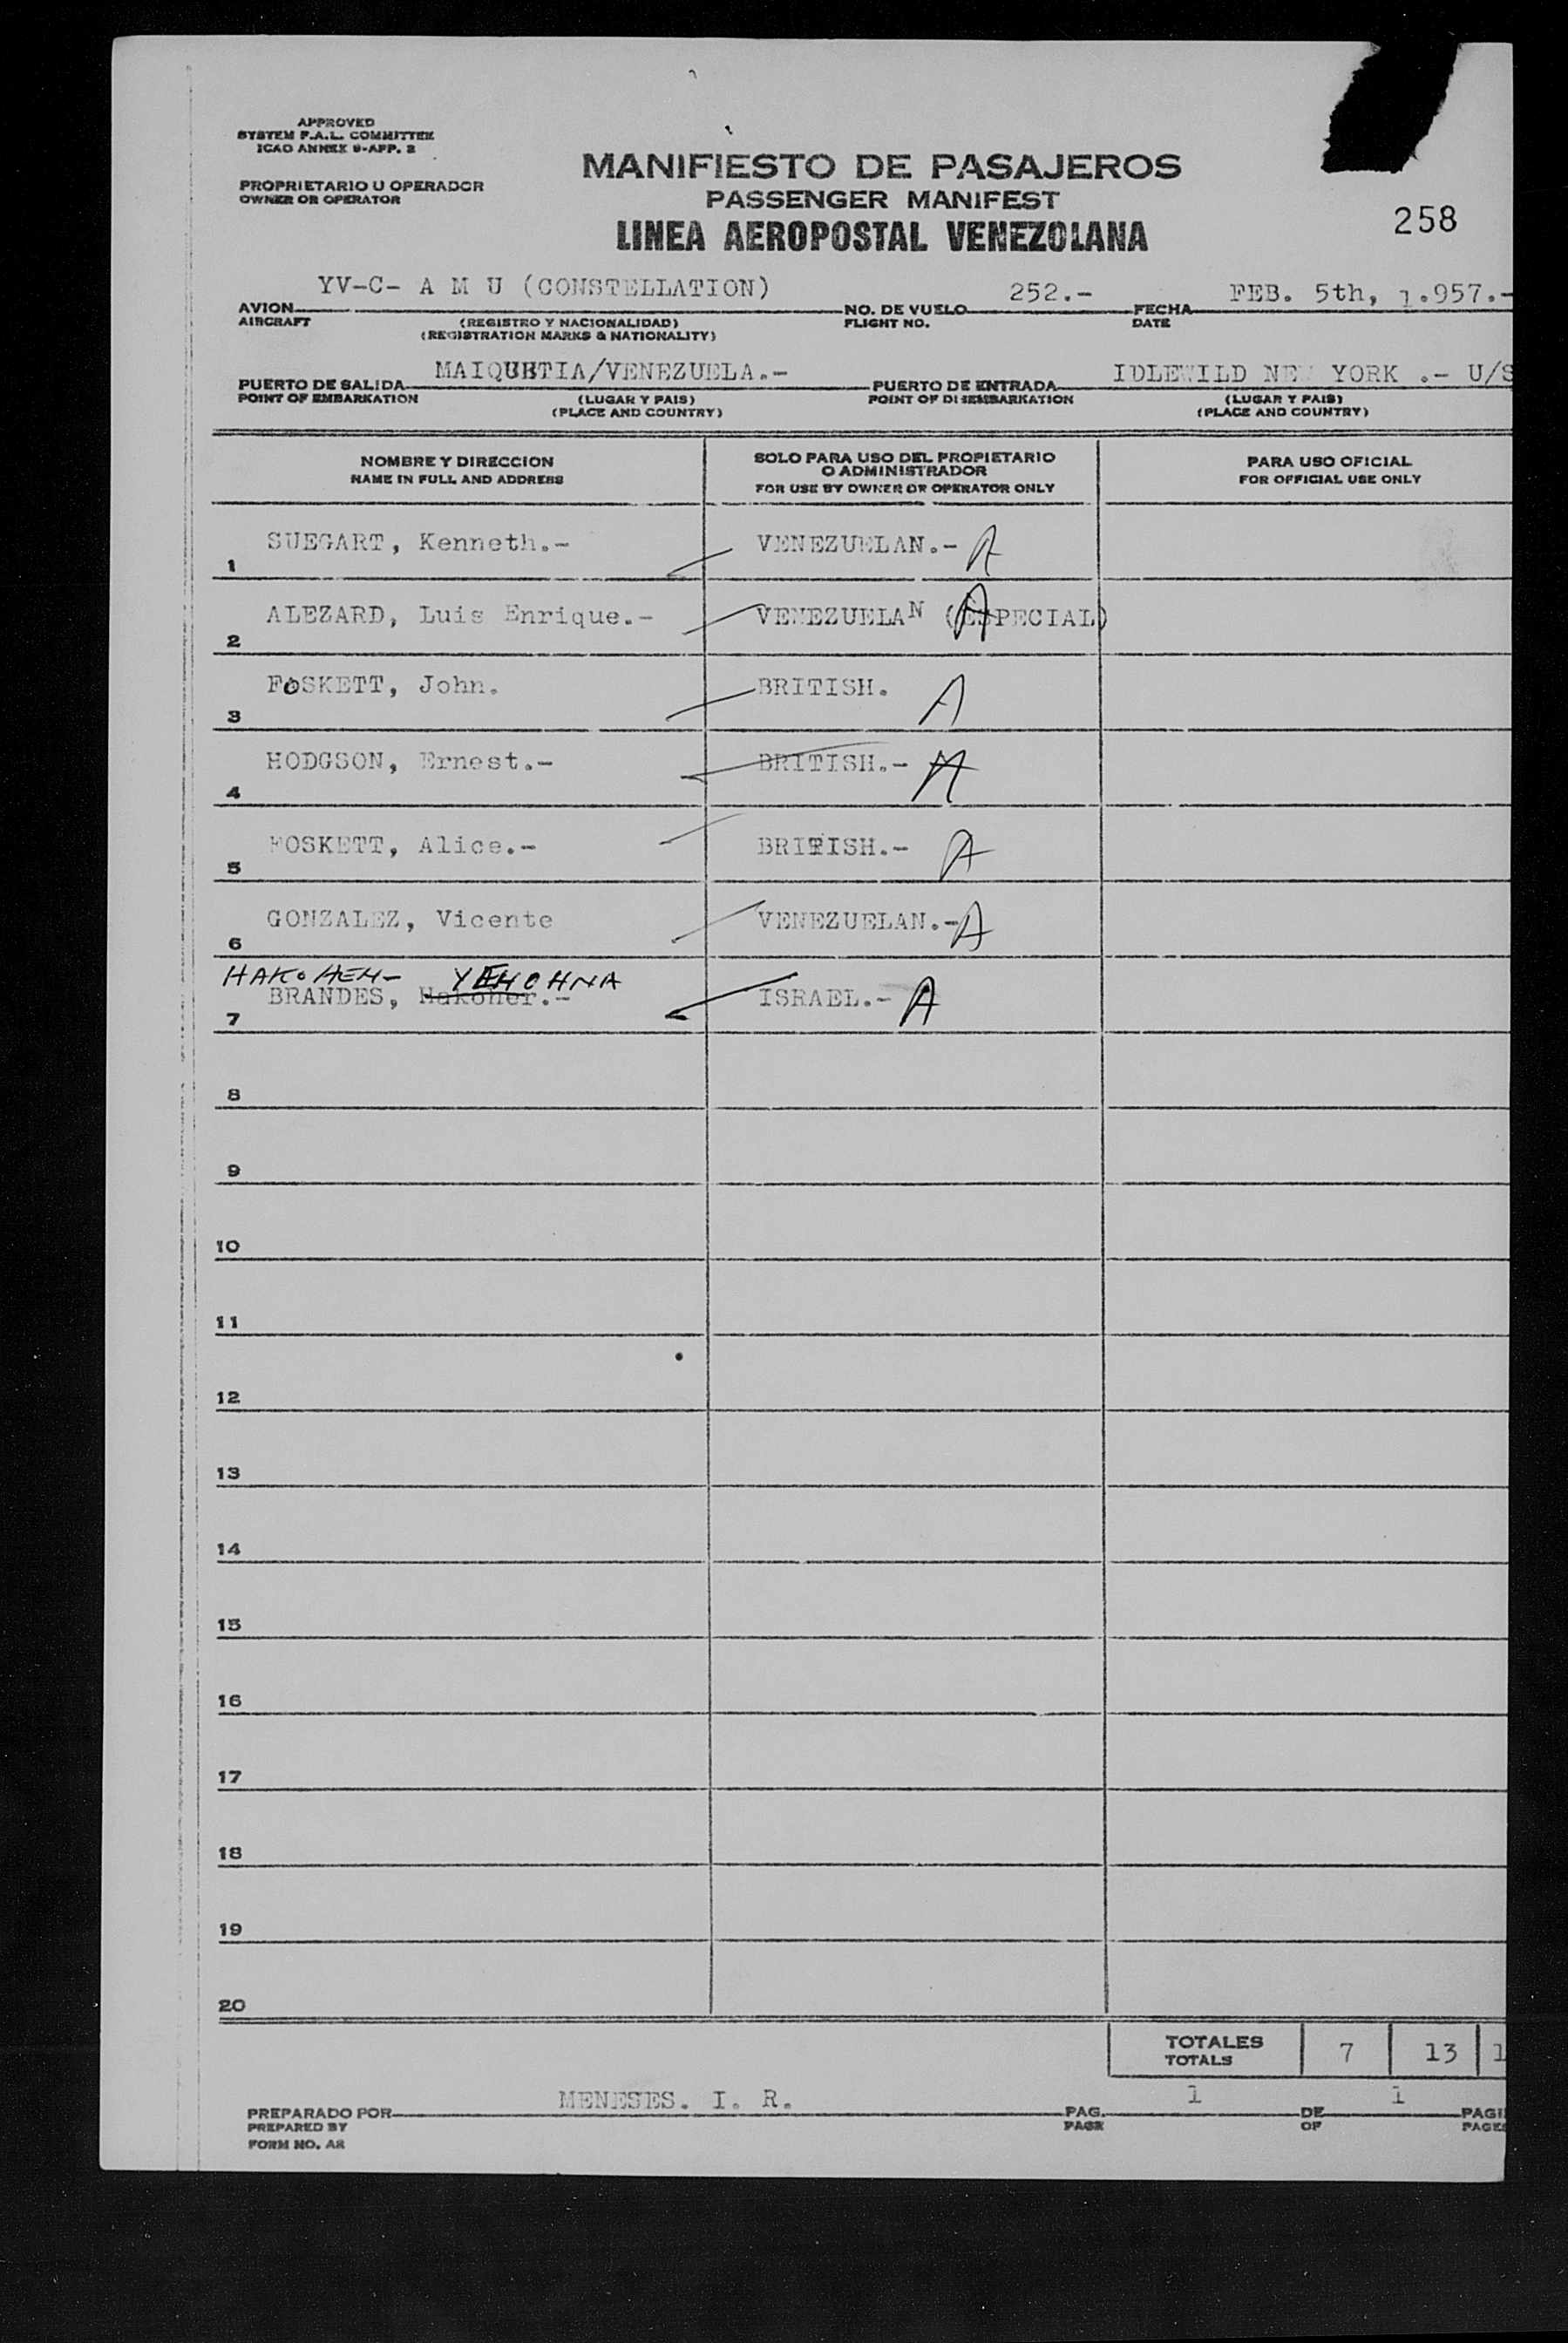 APPROVED
SYSTEM F.A.L. COMMITTEE
ICAO ANNEX 9-APP. 2
PROPRIETARIO U OPERADOR
OWNER OR OPERATOR
MANIFIESTO DE PASAJEROS
PASSENGER MANIFEST
LINEA AEROPOSTAL VENEZOLANA
258
AVION YV-C- A M U (CONSTELLATION) NO. DE VUELO 252.- FECHA FEB. 5th, 1.957.-
AIRCRAFT (REGISTRO Y NACIONALIDAD) FLIGHT NO. DATE
(REGISTRATION MARKS & NATIONALITY)
PUERTO DE SALIDA MAIQUETIA/VENEZUELA.- PUERTO DE ENTRADA IDLEWILD NEW YORK .- U/S
POINT OF EMBARKATION (LUGAR Y PAIS) POINT OF DISEMBARKATION (LUGAR Y PAIS)
(PLACE AND COUNTRY) (PLACE AND COUNTRY)
NOMBRE Y DIRECCION
NAME IN FULL AND ADDRESS
SOLO PARA USO DEL PROPIETARIO
O ADMINISTRADOR
FOR USE BY OWNER OR OPERATOR ONLY
PARA USO OFICIAL
FOR OFFICIAL USE ONLY
1 SUEGART, Kenneth.- VENEZUELAN.- A
2 ALEZARD, Luis Enrique.- VENEZUELAN (ESPECIAL) A
3 FOSKETT, John. BRITISH. A
4 HODGSON, Ernest.- BRITISH.- A
5 FOSKETT, Alice.- BRITISH.- A
6 GONZALEZ, Vicente VENEZUELAN.- A
HAKOHEN- YEHOHNA
7 BRANDES, Hakoher.- ISRAEL.- A
8
9
10
11
12
13
14
15
16
17
18
19
20
TOTALES 7 13 1
TOTALS
PREPARADO POR MENESES. I. R. PAG. 1 DE 1 PAGI
PREPARED BY PAGE OF PAGES
FORM NO. AR